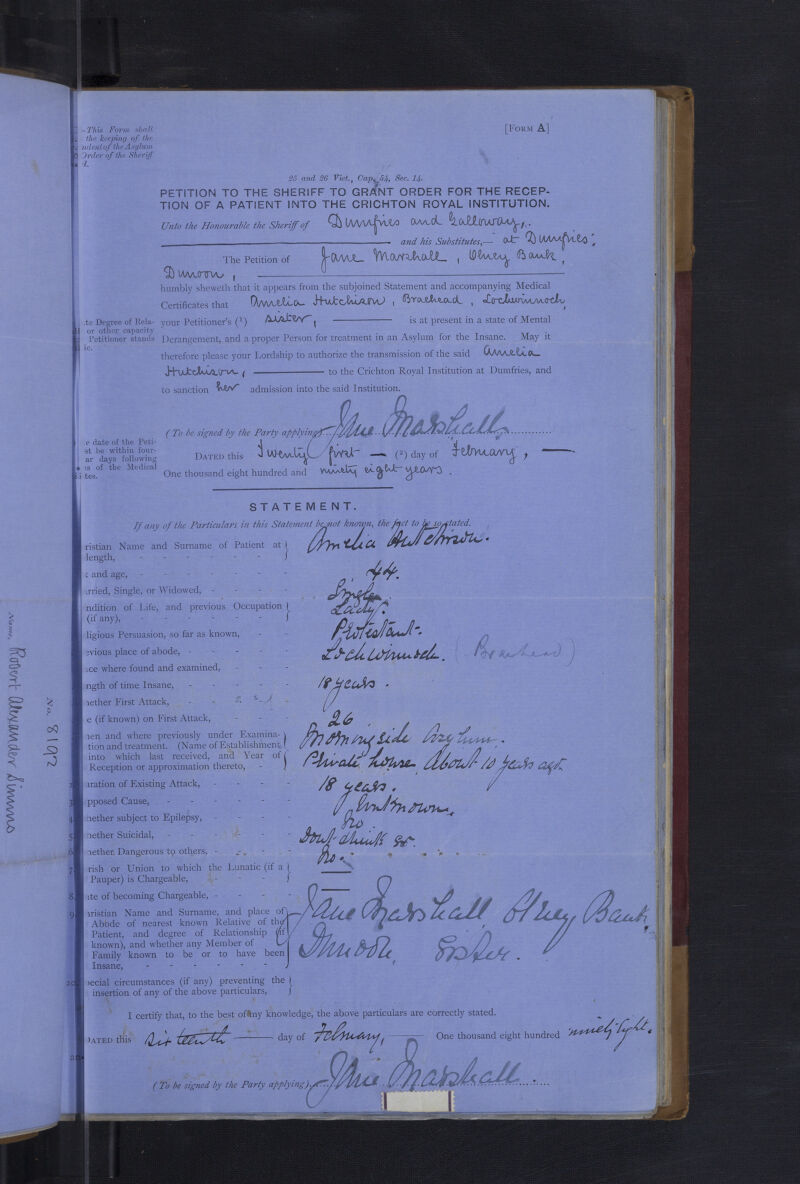 -This Form shall
the keeping of the
ndent of the Asylum
Order of the Sheriff
d.
[FORM A]
25 and 26 Vict., Cap. 54, Sec. 14.
PETITION TO THE SHERIFF TO GRANT ORDER FOR THE RECEP-
TION OF A PATIENT INTO THE CRICHTON ROYAL INSTITUTION.
Unto the Honourable the Sheriff of Dumfries and Galloway,
and his Substitutes,— at Dumfries;
The Petition of Jane Marshall, Olney Bank,
Dunoon,
humbly sheweth that it appears from the subjoined Statement and accompanying Medical
Certificates that Amelia Hutchison, Braehead, Lochwinnoch,
te Degree of Rela-
or other capacity
Petitioner stands
ic.
your Petitioner's (¹) sister, is at present in a state of Mental
Derangement, and a proper Person for treatment in an Asylum for the Insane. May it
therefore please your Lordship to authorize the transmission of the said Amelia
Hutchison, to the Crichton Royal Institution at Dumfries, and
to sanction her admission into the said Institution.
(To be signed by the Party applying) Jane Marshall
e date of the Peti-
st be within four-
ar days following
s of the Medical
tes.
DATED this Twenty first — (²) day of February, —
One thousand eight hundred and ninety eight years.
STATEMENT.
If any of the Particulars in this Statement be not known, the fact to be so stated.
ristian Name and Surname of Patient at
length, Amelia Hutchison.
and age, 44.
rried, Single, or Widowed, Single.
ndition of Life, and previous Occupation
(if any), Lady.
ligious Persuasion, so far as known, Protestant.
evious place of abode, Lochwinnoch. (Braehead)
ace where found and examined,
ngth of time Insane, 18 years.
hether First Attack,
e (if known) on First Attack, 26
hen and where previously under Examina-
tion and treatment. (Name of Establishment,
into which last received, and Year of
Reception or approximation thereto, Morningside Asylum.
Private house. About 10 years ago.
uration of Existing Attack, 18 years.
3. pposed Cause, Unknown.
4. hether subject to Epilepsy, No
5. hether Suicidal, Dont think so.
6. hether Dangerous to others, No.
7. rish or Union to which the Lunatic (if a
Pauper) is Chargeable, —
8. ate of becoming Chargeable, —
9. hristian Name and Surname, and place of
Abode of nearest known Relative of the
Patient, and degree of Relationship (if
known), and whether any Member of
Family known to be or to have been
Insane, Jane Marshall, Olney Bank,
Dunoon. Sister.
20. pecial circumstances (if any) preventing the
insertion of any of the above particulars,
I certify that, to the best of my knowledge, the above particulars are correctly stated.
DATED this sixteenth day of February, One thousand eight hundred ninety eight.
(To be signed by the Party applying), Jane Marshall.
No. 8192
Name, Robert Alexander Simms